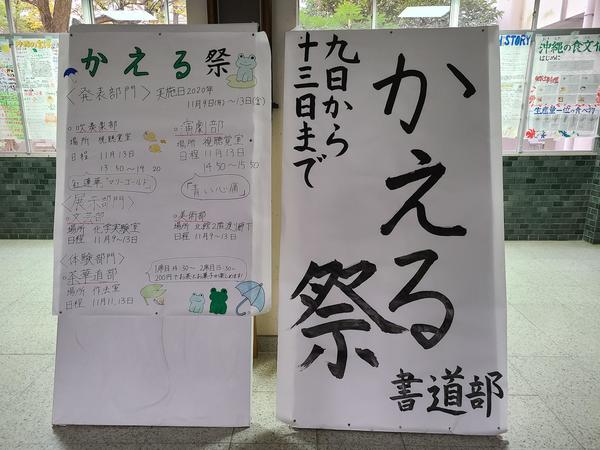 かえる祭
〈発表部門〉 実施日2020年
11月9日(月)〜13日(金)
○吹奏楽部
場所 視聴覚室
日程 11月13日
13:50〜14:20
紅蓮華 マリーゴールド
○演劇部
場所 視聴覚室
日程 11月13日
14:50〜15:50
「青い心臓」
〈展示部門〉
○文芸部
場所 化学実験室
日程 11月9〜13日
○美術部
場所 北館2階渡り廊下
日程 11月9〜13日
〈体験部門〉
○茶華道部
場所 作法室
日程 11月11,13日
200円でお茶とお菓子が楽しめます!
九日から
十三日まで
かえる
祭
書道部
STORY
沖縄の食文化
はじめに